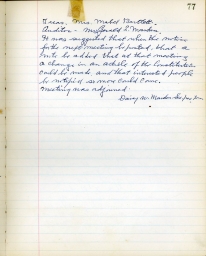 77
Treas. Mrs. Mabel Bartlett
Auditor - Mrs. Donald L. Marden
It was suggested that when the notice
for the next meeting be posted, that a
note be added that at that meeting
a change in an article of the Constitution
could be made, and that interested people
be notified so more could come.
Meeting was adjourned.
Daisy M. Marden Sec.